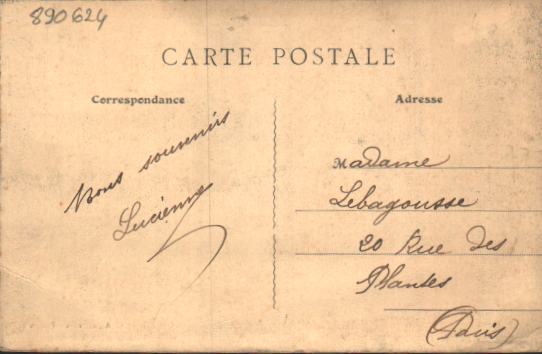 890624
CARTE POSTALE
Correspondance
Adresse
Bons souvenirs
Lucienne
Madame
Lebagousse
20 Rue des
Plantes
(Paris)